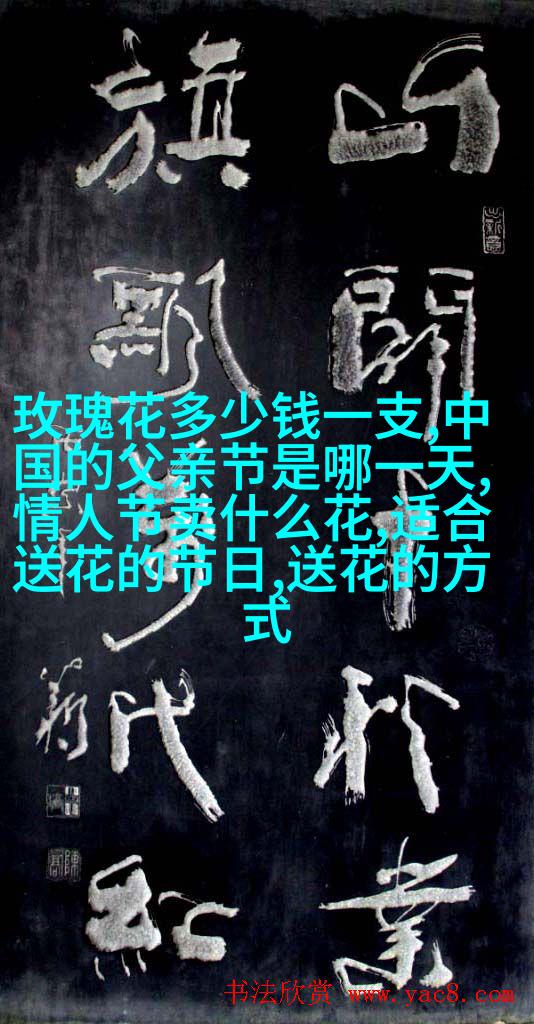 山開千秋業
旗代紅
玫瑰花多少钱一支,中
国的父亲节是哪一天,
情人节卖什么花,适合
送花的节日,送花的方
式
书法欣赏 www.yac8.com